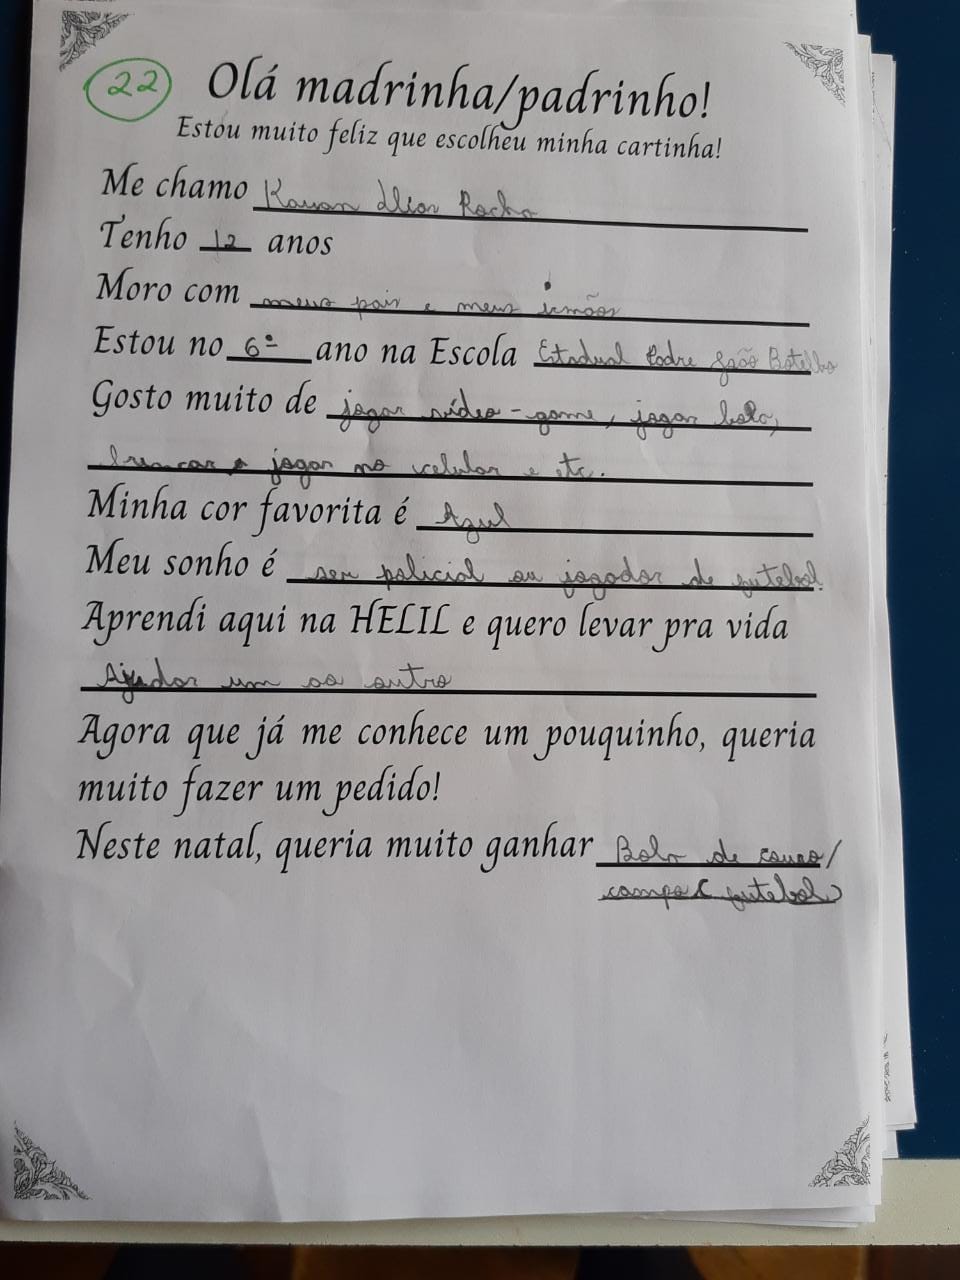 22
Olá madrinha/padrinho!
Estou muito feliz que escolheu minha cartinha!
Me chamo Kauan Rocha
Tenho 12 anos
Moro com meus pais e meus irmãos
Estou no 6º ano na Escola Estadual Padre João Botelho
Gosto muito de jogar vídeo-game, jogar bola,
brincar e jogar no celular e etc.
Minha cor favorita é Azul
Meu sonho é ser policial ou jogador de futebol.
Aprendi aqui na HELIL e quero levar pra vida
Ajudar um ao outro
Agora que já me conhece um pouquinho, queria
muito fazer um pedido!
Neste natal, queria muito ganhar Bola de couro/
campo ( futebol)